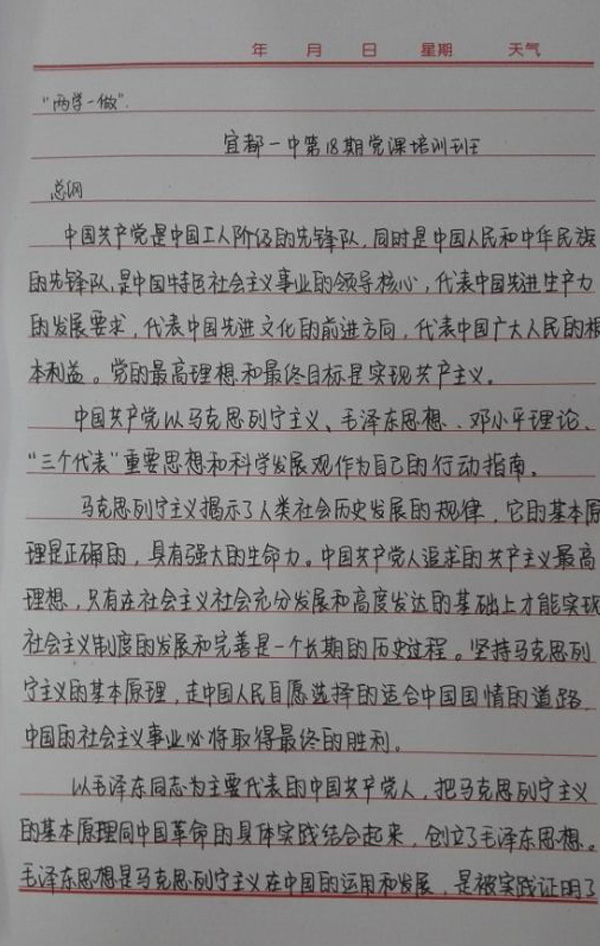 年 月 日 星期 天气
"两学一做".
宜都一中第18期党课培训班
总纲
中国共产党是中国工人阶级的先锋队,同时是中国人民和中华民族
的先锋队,是中国特色社会主义事业的领导核心,代表中国先进生产力
的发展要求,代表中国先进文化的前进方向,代表中国广大人民的根
本利益。党的最高理想和最终目标是实现共产主义。
中国共产党以马克思列宁主义、毛泽东思想、邓小平理论、
"三个代表"重要思想和科学发展观作为自己的行动指南。
马克思列宁主义揭示了人类社会历史发展的规律,它的基本原
理是正确的,具有强大的生命力。中国共产党人追求的共产主义最高
理想,只有在社会主义社会充分发展和高度发达的基础上才能实现
社会主义制度的发展和完善是一个长期的历史过程。坚持马克思列
宁主义的基本原理,走中国人民自愿选择的适合中国国情的道路
中国的社会主义事业必将取得最终的胜利。
以毛泽东同志为主要代表的中国共产党人,把马克思列宁主义
的基本原理同中国革命的具体实践结合起来,创立了毛泽东思想。
毛泽东思想是马克思列宁主义在中国的运用和发展,是被实践证明了